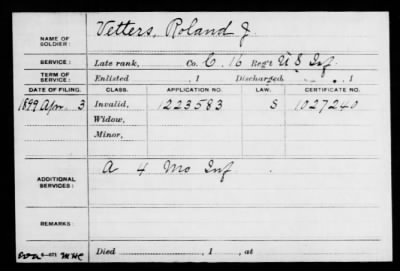 NAME OF SOLDIER: Vetters, Roland J.
SERVICE: Late rank, Co. C, 16 Reg't U S Inf.
TERM OF SERVICE: Enlisted , 1 Discharged , 1
DATE OF FILING. CLASS. APPLICATION NO. LAW. CERTIFICATE NO.
1899 Apr. 3 Invalid, 1223583 S 1027240
Widow,
Minor,
ADDITIONAL SERVICES: A 4 Mo Inf.
REMARKS:
Died , 1 , at